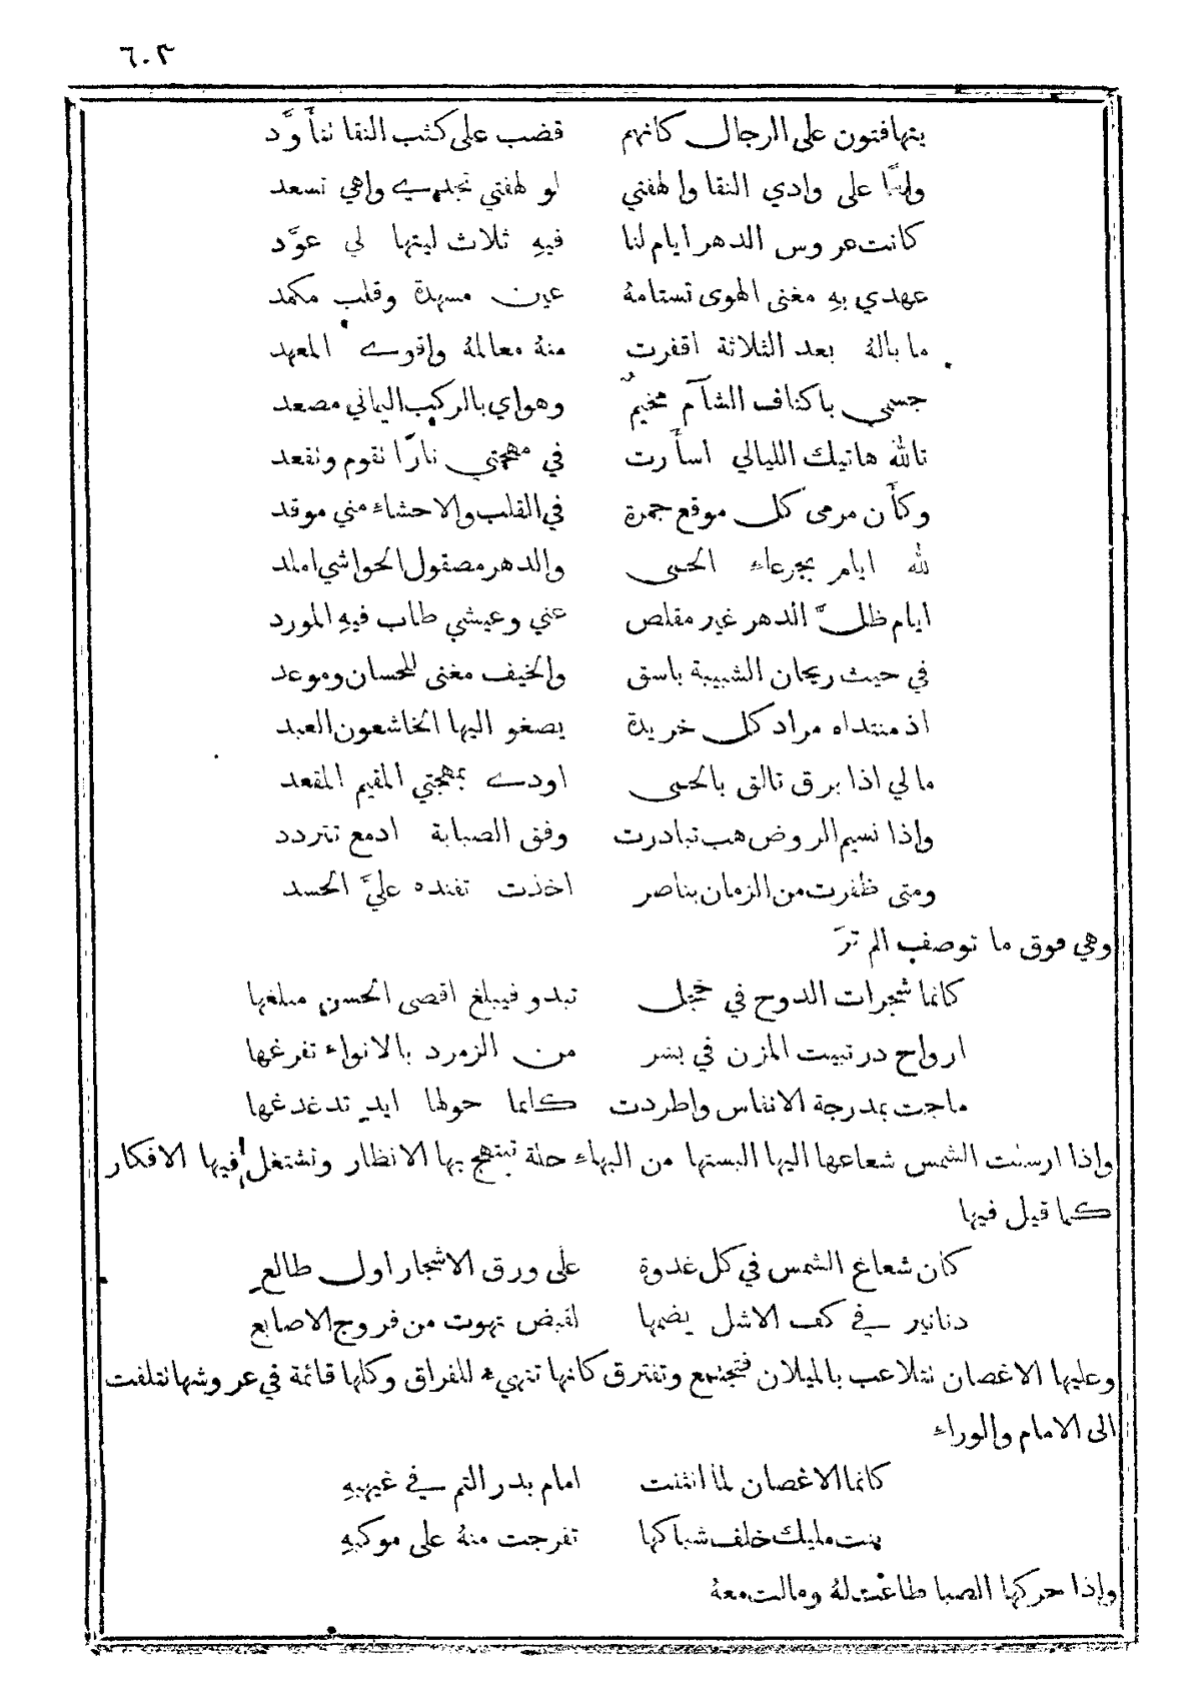 ٦٠٣
يتهافتون على الرحال كانهم قضب على كثب النقا نتأوَّد
واهًا على وادي النقا والهفتي لو لهفتي تجدي واهي تسعد
كانت عروس الدهر ايام لنا فيهِ ثلاث ليتها لي عوَّد
عهدي بهِ مغنى الهوى تستامهُ عين مسهدة وقلب مكمد
ما بالهُ بعد الثلاثة اقفرت منهُ معالمهُ واقوى المعهد
جسمي باكناف الشآم مخيمٌ وهواي بالركب اليماني مصعد
تالله هاتيك الليالي اسأرت في مهجتي نارًا نقوم ونقعد
وكأن مرمى كل موقع جمرة في القلب والاحشاء مني موقد
لله ايام بجرعاء الحمى والدهر مصقول الحواشي املد
ايام ظلّ الدهر غير مقلص عني وعيشي طاب فيهِ المورد
في حيث ريحان الشبيبة باسق والخيف مغنى للحسان وموعد
اذ منتداه مراد كل خريدة يصغو اليها الخاشعون العبد
ما لي اذا برق تالق بالحمى اودى بمهجتي المقيم المقعد
واذا نسيم الروض هب تبادرت وفق الصبابة ادمع تتردد
ومتى ظفرت من الزمان بناصر اخذت تفنده عليَّ الحسد
وهي فوق ما توصف الم ترَ
كانما شجرات الدوح في خجل تبدو فيبلغ اقصى الحسن مبلغها
ارواح در تبيت المزن في من الزمرد بالانواء تفرغها
ماجت بمدرجة الانفاس واطردت كانما حولها ايد تدغدغها
واذا ارسلت الشمس شعاعها اليها البستها من البهاء حلة تبتهج بها الانظار ونشتغل فيها الافكار
كما قيل فيها
كان شعاع الشمس في كل غدوة على ورق الاشجار اول طالعِ
دنانير في كف الاشل يضمها لقبض تهوت من فروج الاصابع
وعليها الاغصان نتلاعب بالميلان فتجتمع وتفترق كانها تتهيء للفراق وكلها قائمة في عروشها نتلفت
الى الامام والوراء
كانما الاغصان لما انثنت امام بدر التم في غيهبهِ
بنت مليك خلف شباكها تفرجت منهُ على موكبهِ
واذا حركها الصبا طاعت لهُ ومالت معهُ